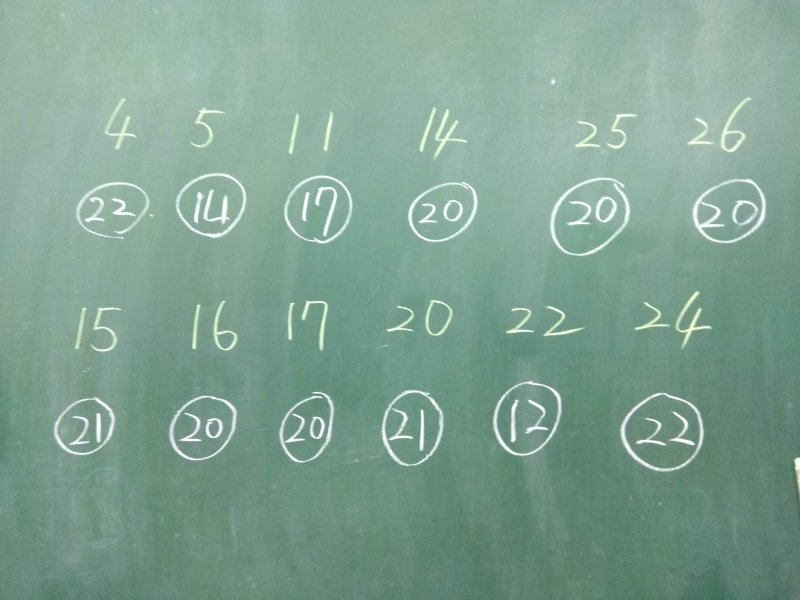 4 5 11 14 25 26
22 14 17 20 20 20
15 16 17 20 22 24
21 20 20 21 12 22